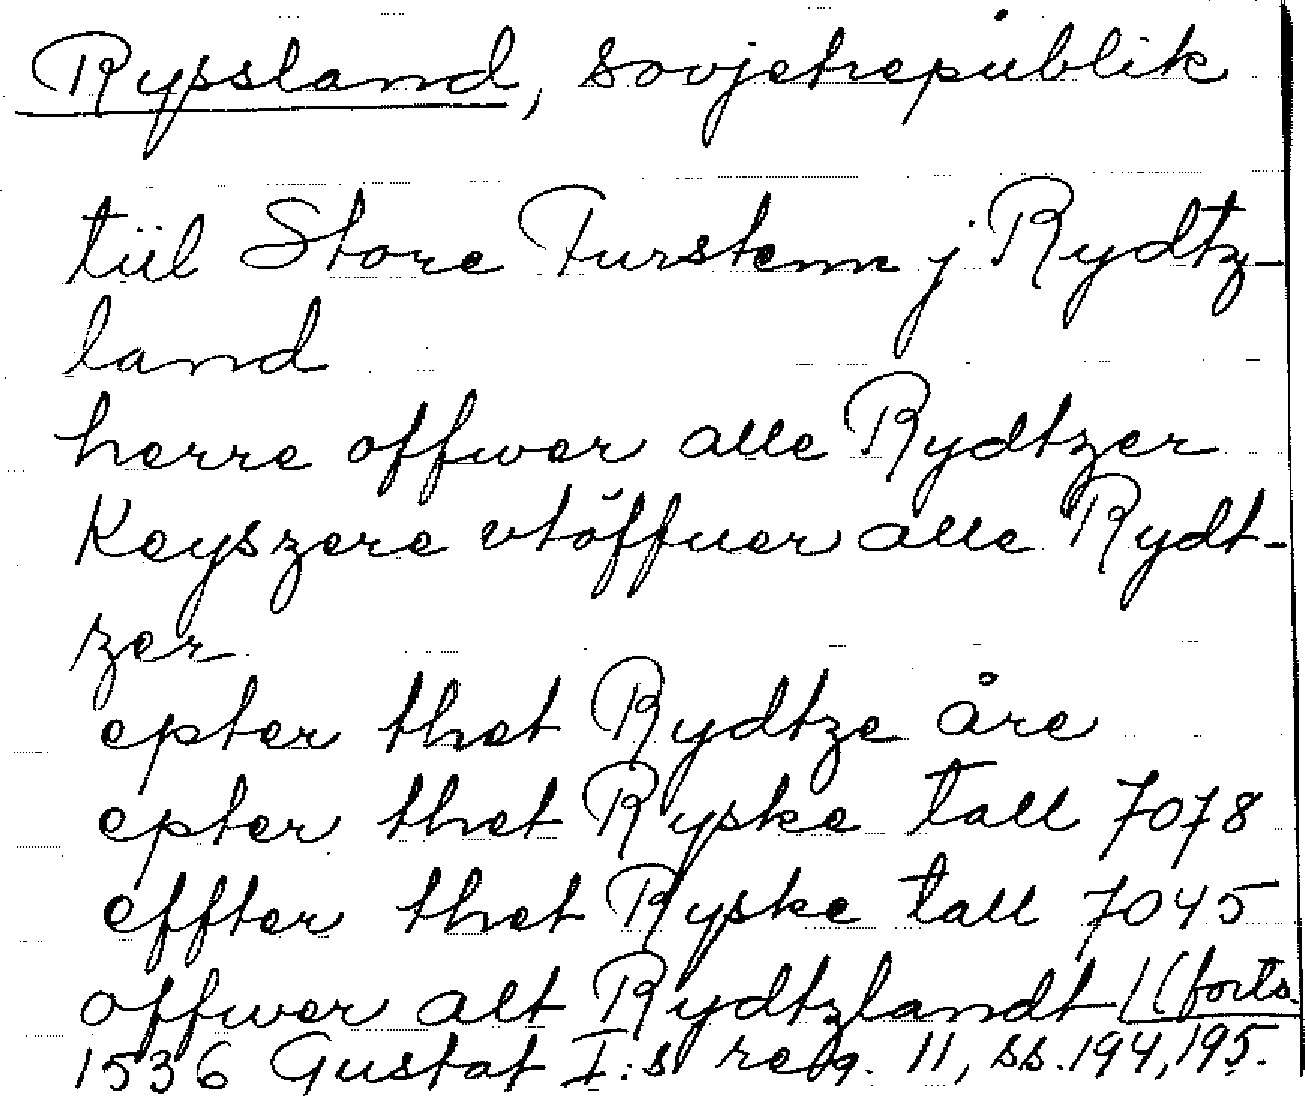 Ryssland, sovjetrepublik
tiil Store Furstenn j Rydtz-
land
herre offwer alle Rydtzer
Keyszere vtöffuer alle Rydt-
zer
epter thet Rydtze åre
epter thet Ryske tall 7078
effter thet Ryske tall 7045
offwer alt Rydtzlandt /(forts.
1536 Gustaf I:s reg. 11, ss. 194, 195.